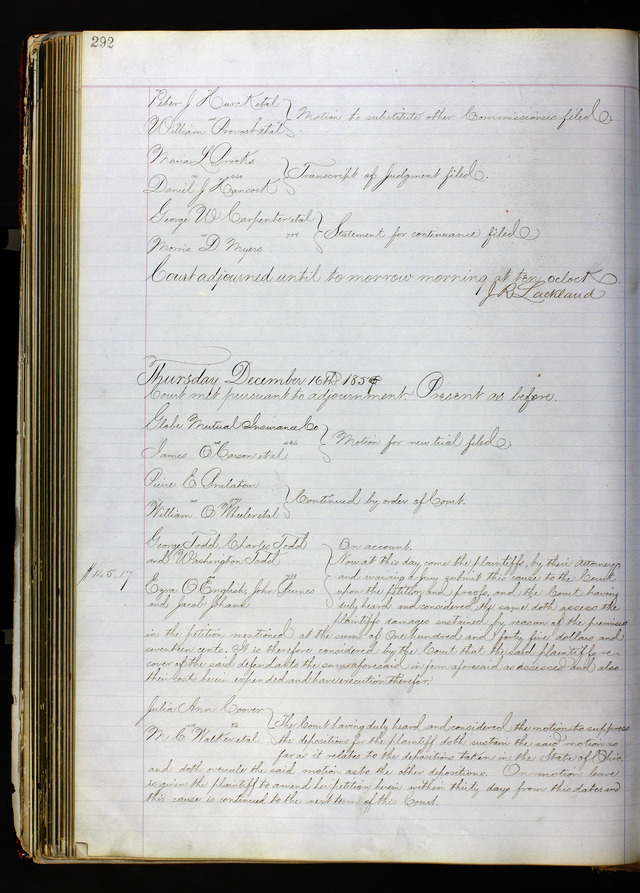 292
Peter J Hurck et al
vs
William Provost et al } Motion to substitute other Commissioners filed.
Maria L Brooks
vs
Daniel J Hancock } Transcript of Judgment filed.
George W Carpenter et al
vs
Morris D Myers } Statement for continuance filed
Court adjourned until to morrow morning at ten oclock
J R Lackland
Thursday December 16th 185
Court met pursuant to adjournment Present as before.
Globe Mutual Insurance Co
vs
James O Carson et al } Motion for new trial filed
vs
William O Wheeler et al } Continued by order of Court.
George Todd, Charles Todd } On account.
and Washington Todd } Now at this day come the plaintiffs, by their Attorney
vs } and waiving a jury submit this cause to the Court
$145.17 Ezra O English, John } upon the petition and proofs, and the Court having
and Jacob } duly heard and considered the same doth assess the
plaintiffs damages sustained by reason of the premises
in the petition mentioned at the sum of One hundred and forty five dollars and
seventeen cents. It is therefore considered by the Court that the said plaintiffs re-
cover of the said defendants the sum aforesaid in form aforesaid as assessed and also
their costs herein expended and have execution therefor.
Julia Ann Coover } The Court having duly heard and considered the motion to suppress
M C Walker et al } the depositions for the plaintiff doth sustain the said motion so
far as it relates to the depositions taken in the State of Ohio
and doth overrule the said motion as to the other depositions. On motion leave
is given the plaintiff to amend her petition herein within thirty days from this date and
this cause is continued to the next term of this Court.